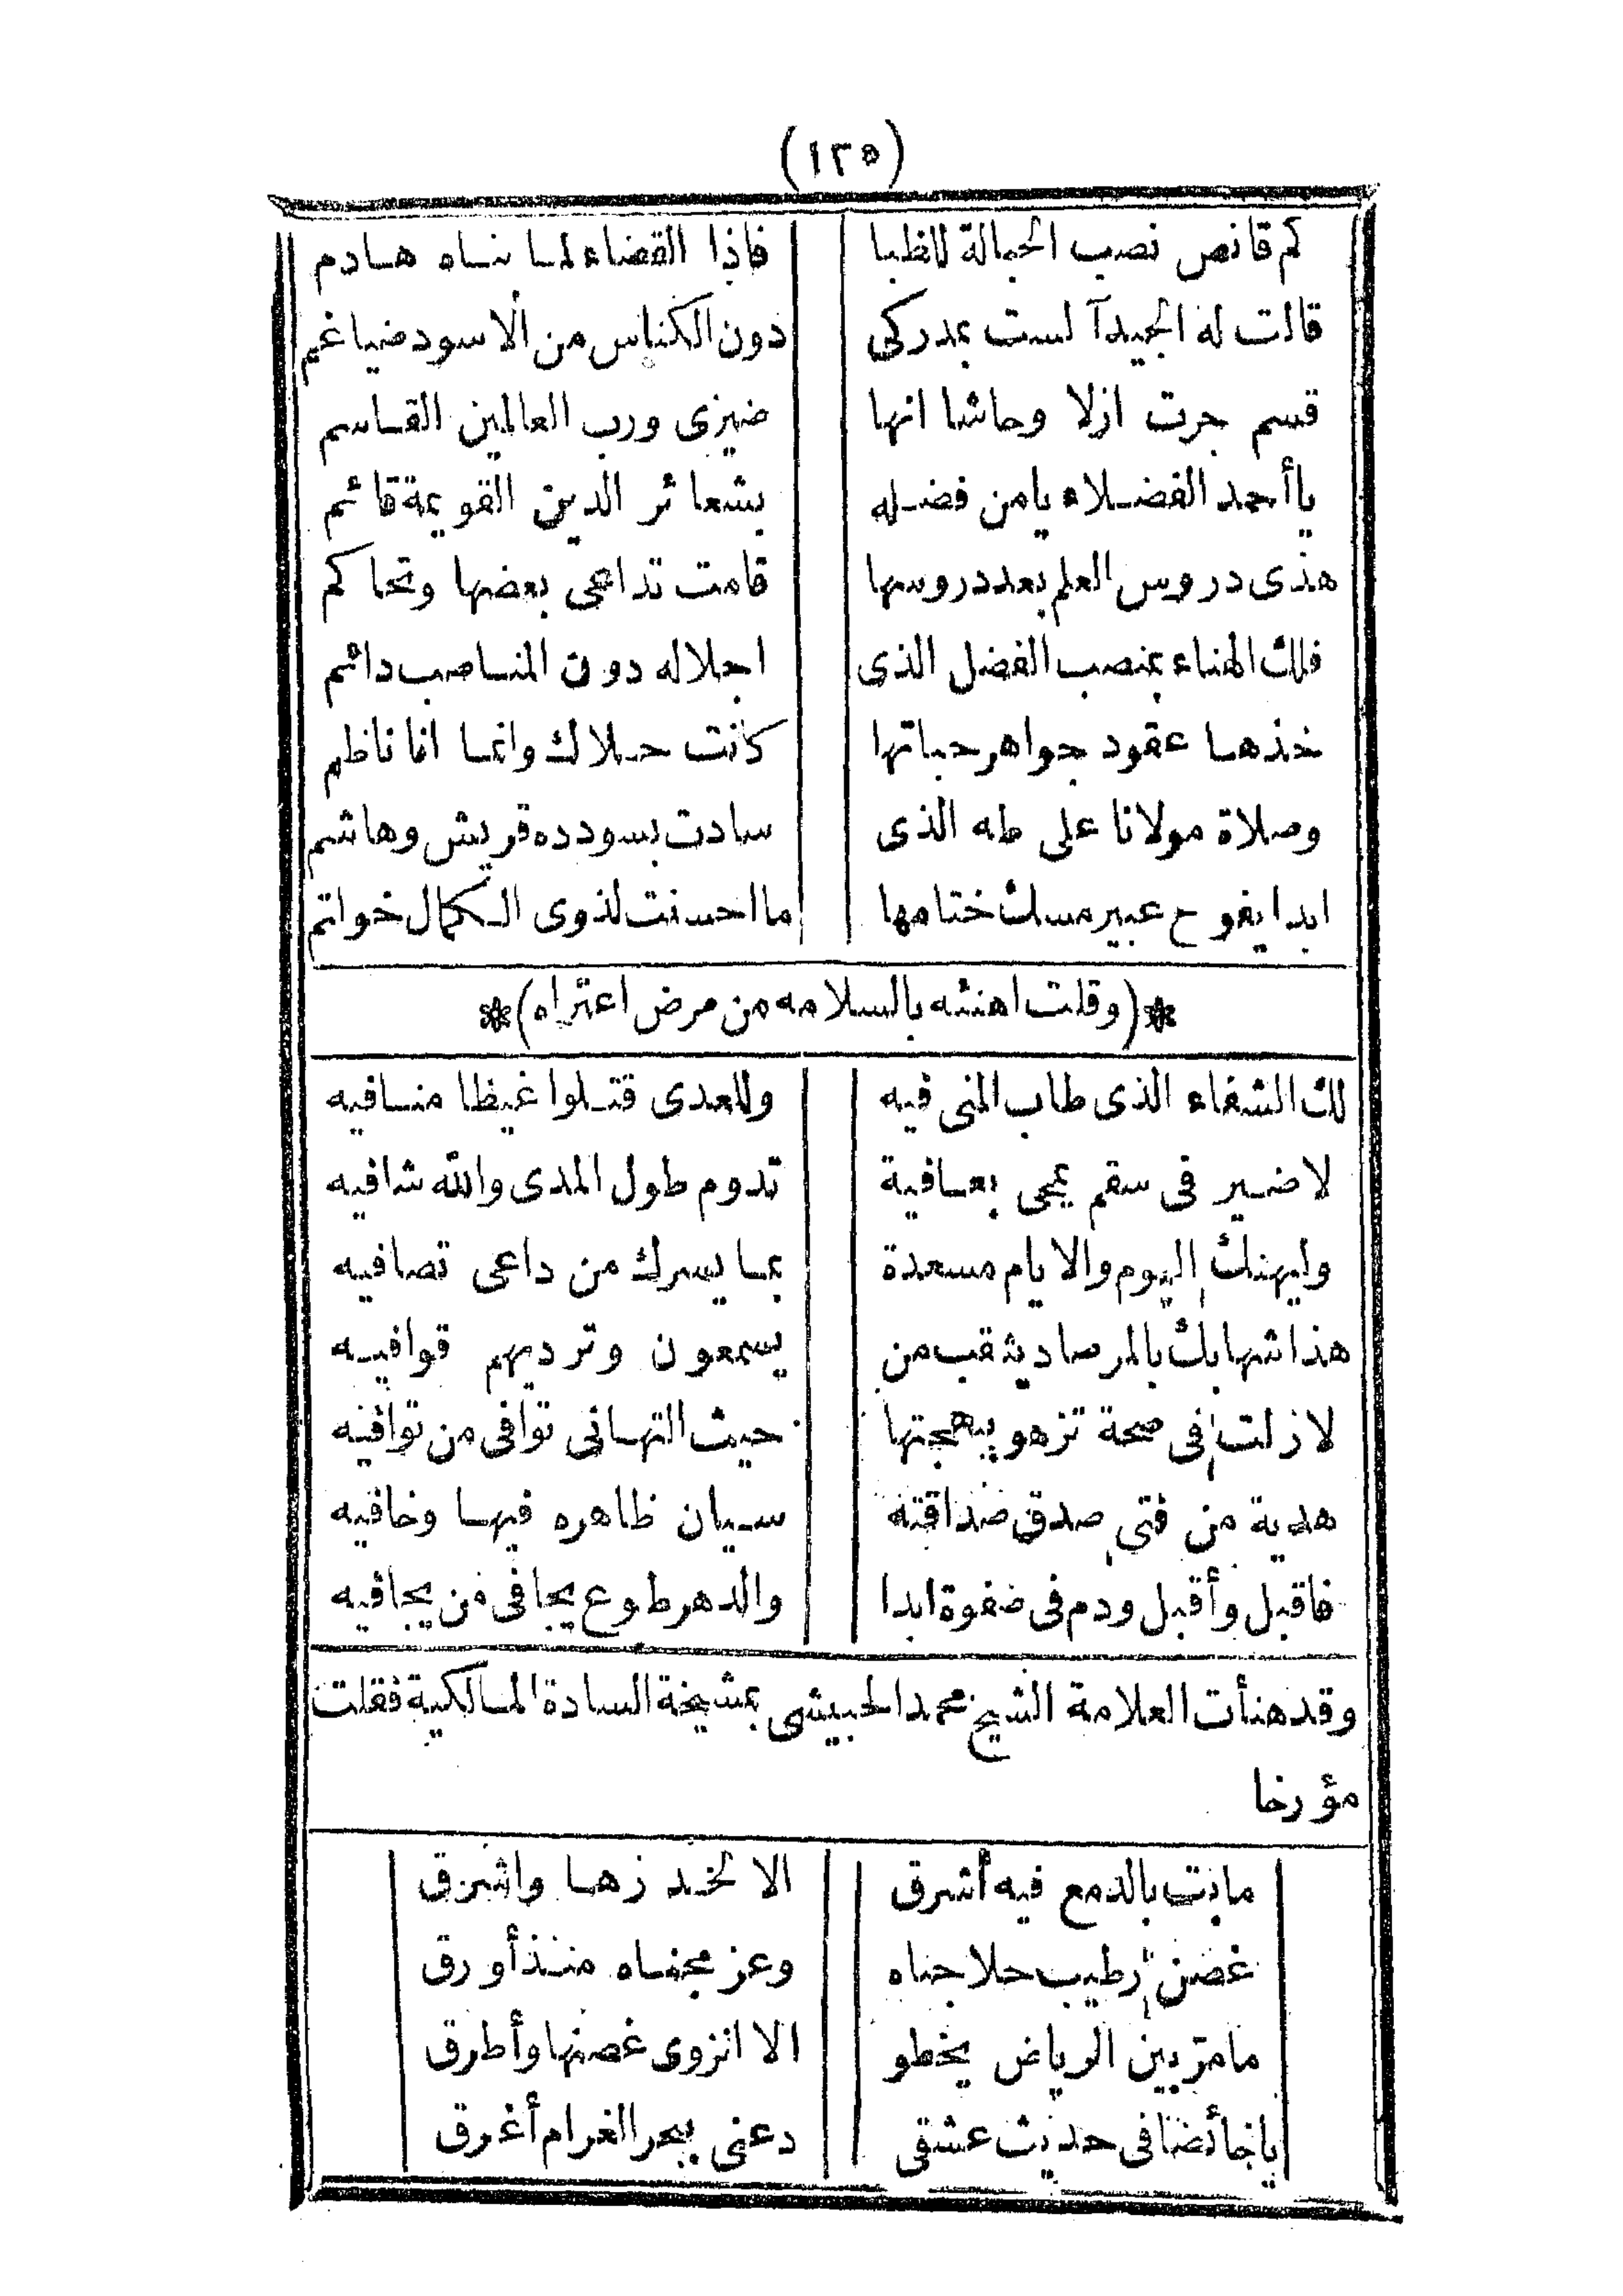 (١٢٥)
كم قانص نصب الحبالة للظبا فاذا القضاء لما بناه هادم
قالت له الجيدآ لست بمدركى دون الكناس من الاسود ضياغم
قسم جرت ازلا وحاشا انها ضيزى ورب العالمين القاسم
ياأحمد الفضلاء يامن فضله بشعائر الدين القويمة قائم
هذى دروس العلم بعد دروسها قامت تداعى بعضها وتحاكم
فلك الهناء بمنصب الفضل الذى اجلاله دون المناصب دائم
خذها عقود جواهر حباتها كانت حلاك وانما انا ناظم
وصلاة مولانا على طه الذى سادت بسودده قريش وهاشم
ابدا يفوح عبير مسك ختامها ما احسنت لذوى الكمال خواتم
*(وقلت اهنئه بالسلامه من مرض اعتراه)*
لك الشفاء الذى طاب المنى فيه وللعدى قتلوا غيظا منافيه
لا ضير فى سقم يمحى بعافية تدوم طول المدى والله شافيه
وليهنك اليوم والايام مسعدة بما يسرك من داعى تصافيه
هذا شهابك بالمرصاد يثقب من يسمعون وترديهم قوافيه
لازلت فى صحة تزهو ببهجتها حيث التهانى توافى من توافيه
هدية من فتى صدق صداقته سيان ظاهره فيها وخافيه
فاقبل وأقبل ودم فى صفوة ابدا والدهر طوع يجافى من يجافيه
وقد هنأت العلامة الشيخ محمد الحبيشى بمشيخة السادة المالكية فقلت
مؤرخا
مابت بالدمع فيه أشرق الا لخد زها واشرق
غصن رطيب حلا جناه وعز مجناه منذ أورق
مامر بين الرياض يخطو الا انزوى غصنها وأطرق
ياخائضا فى حديث عشقى دعنى ببحر الغرام أغرق